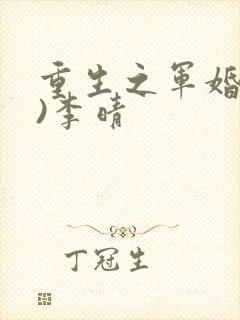 重生之军婚
)李晴
丁冠生